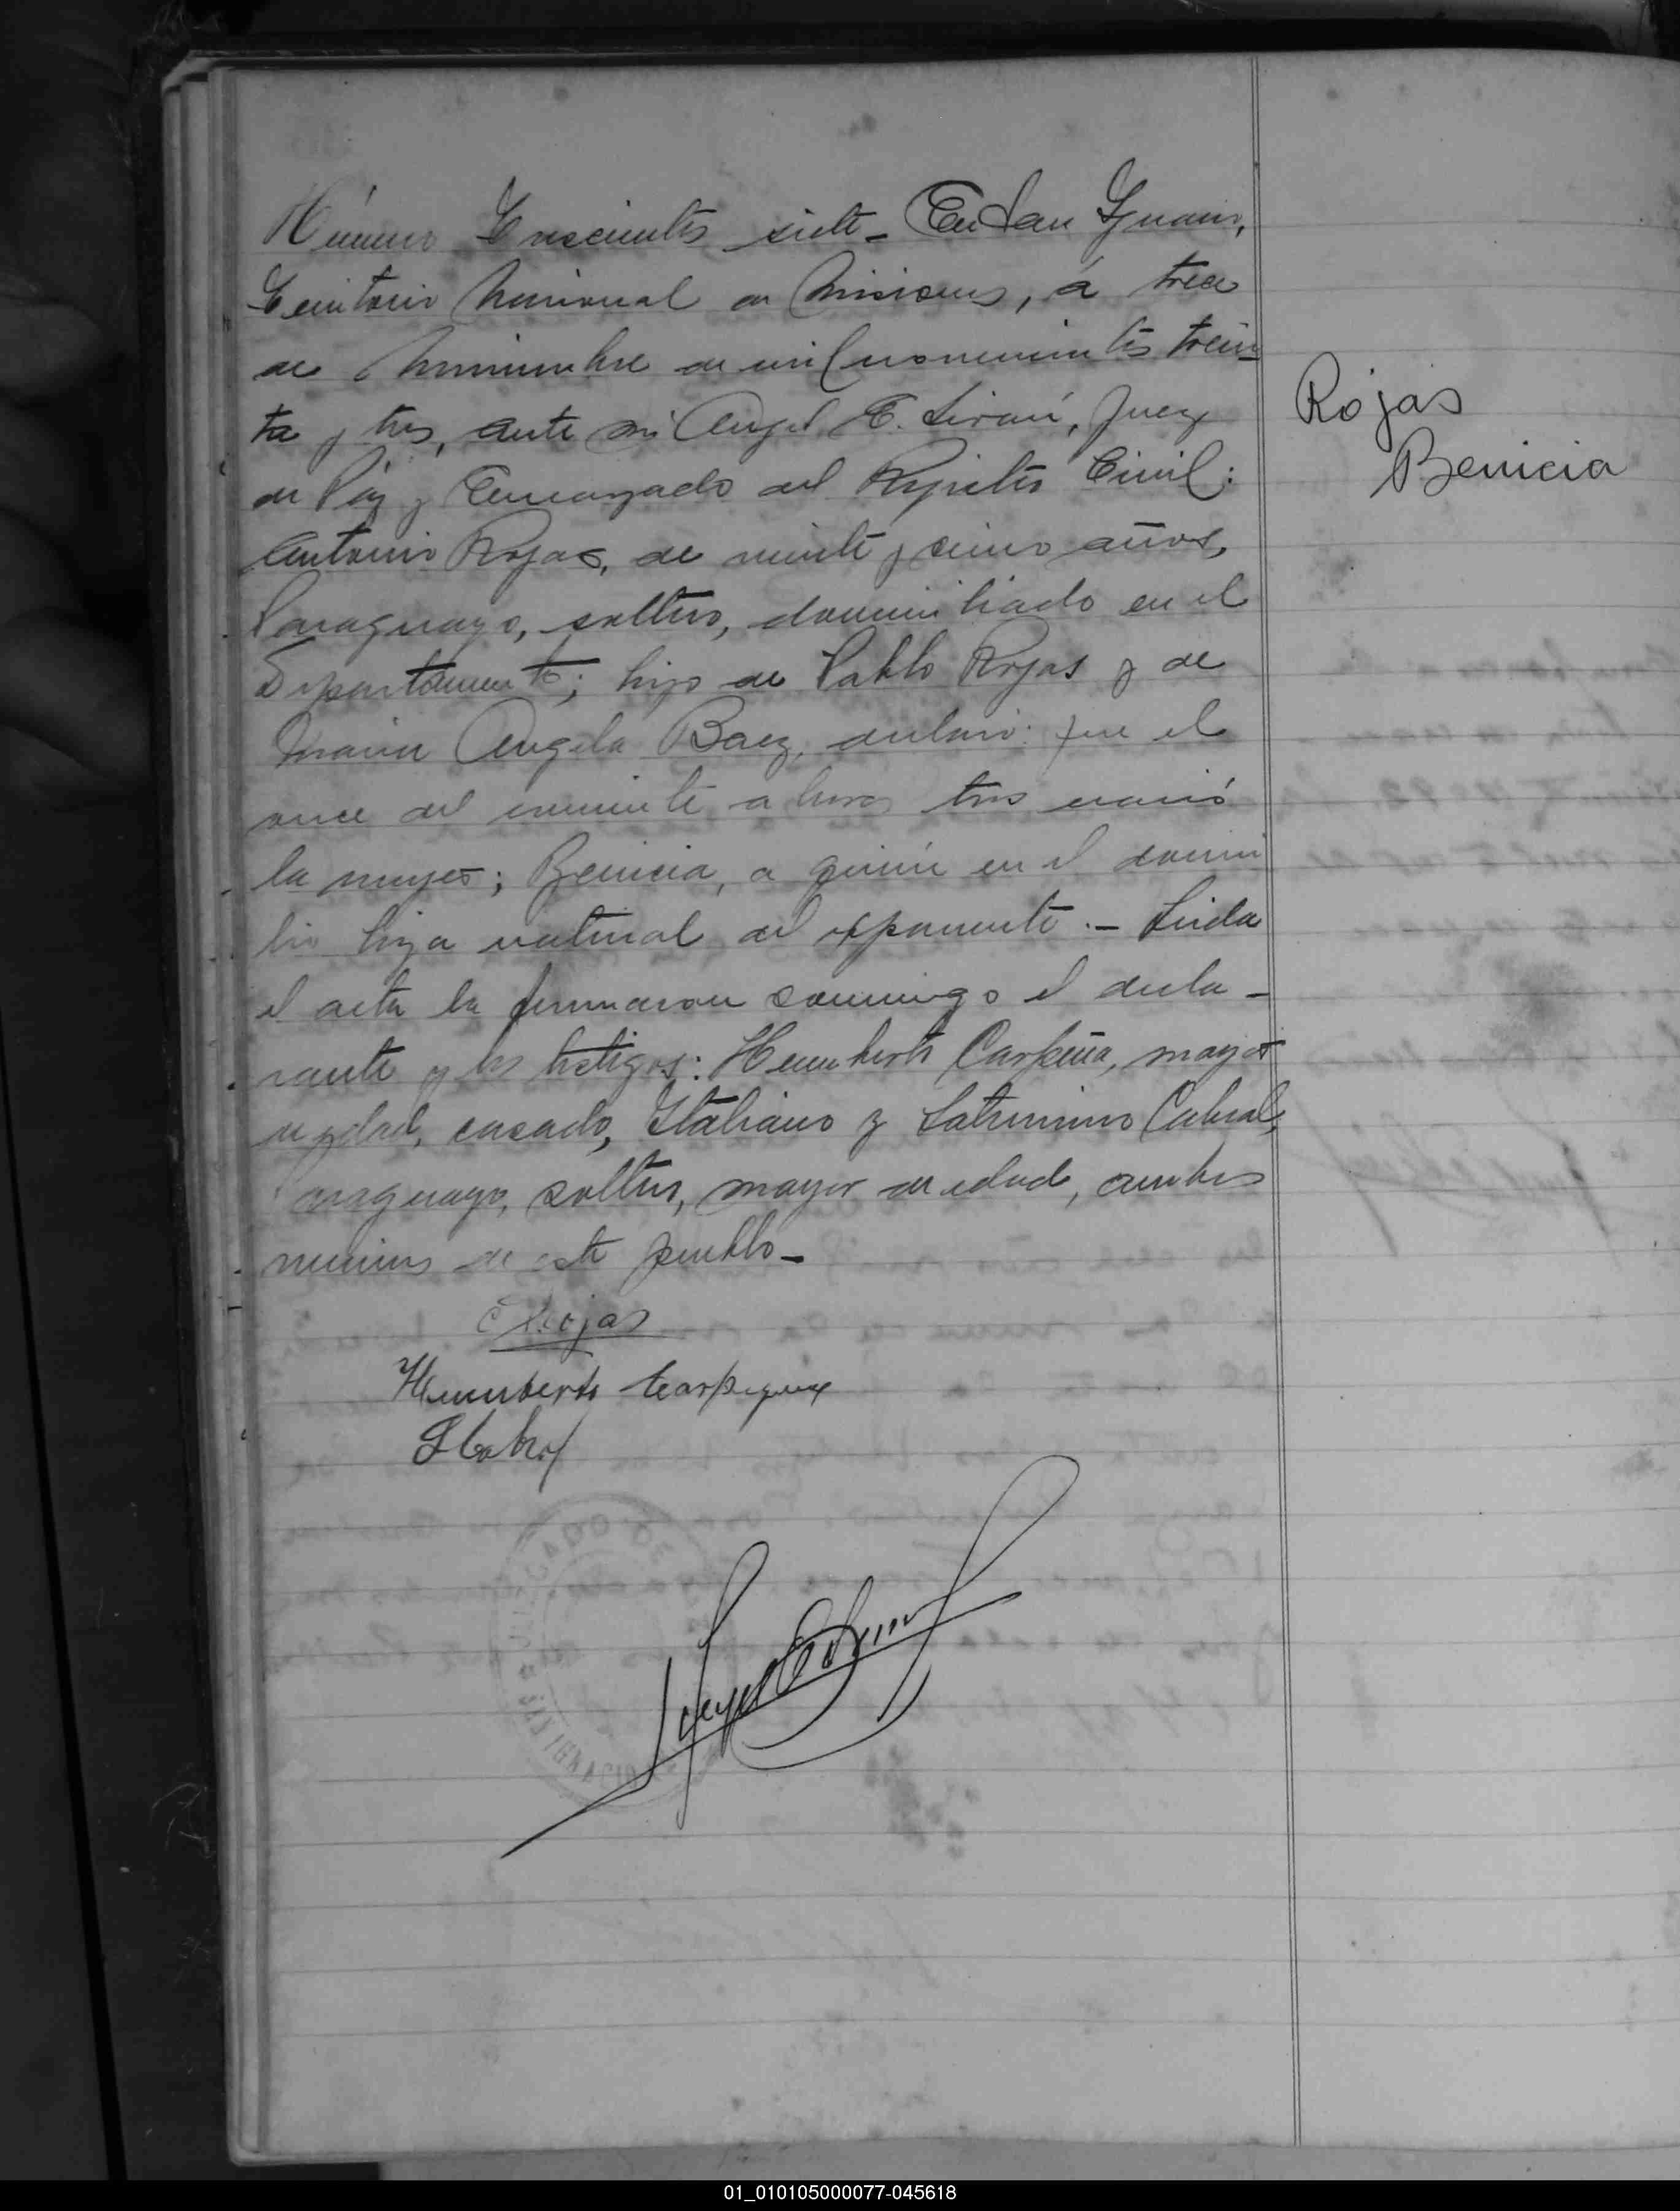 Número Trescientos siete - En San Ignacio,
Territorio Nacional de Misiones, á trece
de Noviembre de mil novecientos trein-
ta y tres, ante mi Angel E. , Juez
de Páz y Encargado del Registro Civil:
Antonio Rojas, de veinte y cinco años,
Paraguayo, soltero, domiciliado en el
Departamento; hijo de Pablo Rojas y de
Maria Angela Baez, declaró: que el
once del corriente a horas tres nació
la mujer; Benicia, a quién en el domi
lio hija natural del exponente. - Leida
el acta la firmaron conmigo el decla-
rante y los testigos: Humberto Carpeña, mayor
de edad, casado, Italiano y Saturnino Cabral,
Paraguayo, soltero, mayor de edad, ambos
vecinos de este pueblo -
Rojas
Humberto
SCabral
Rojas
Benicia
JUZGADO DE
SAN IGNACIO
01_010105000077-045618